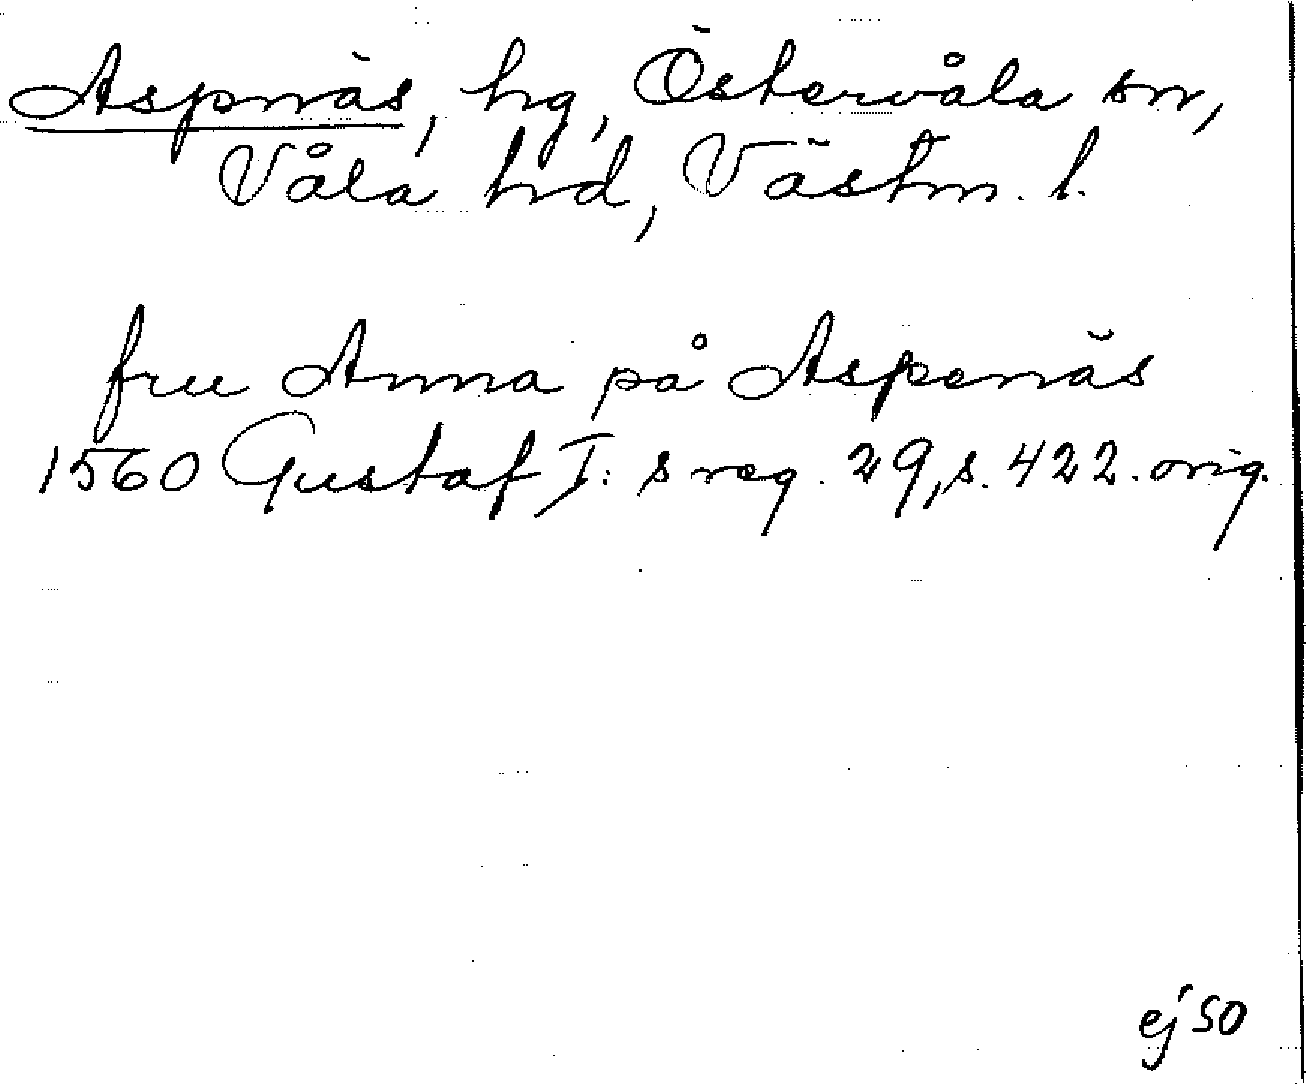 Aspnäs, hg, Östervåla sn,
Våla hd, Västm. l.
fru Anna på Aspenäs
1560 Gustaf I: s reg. 29, s. 422. orig.
ej SO